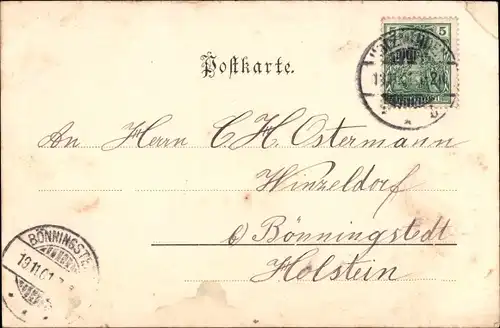 5
Postkarte.
An Herrn C. H. Ostermann
Winzeldorf
b) Bönningstedt
Holstein
BÖNNINGSTE
19.11.01